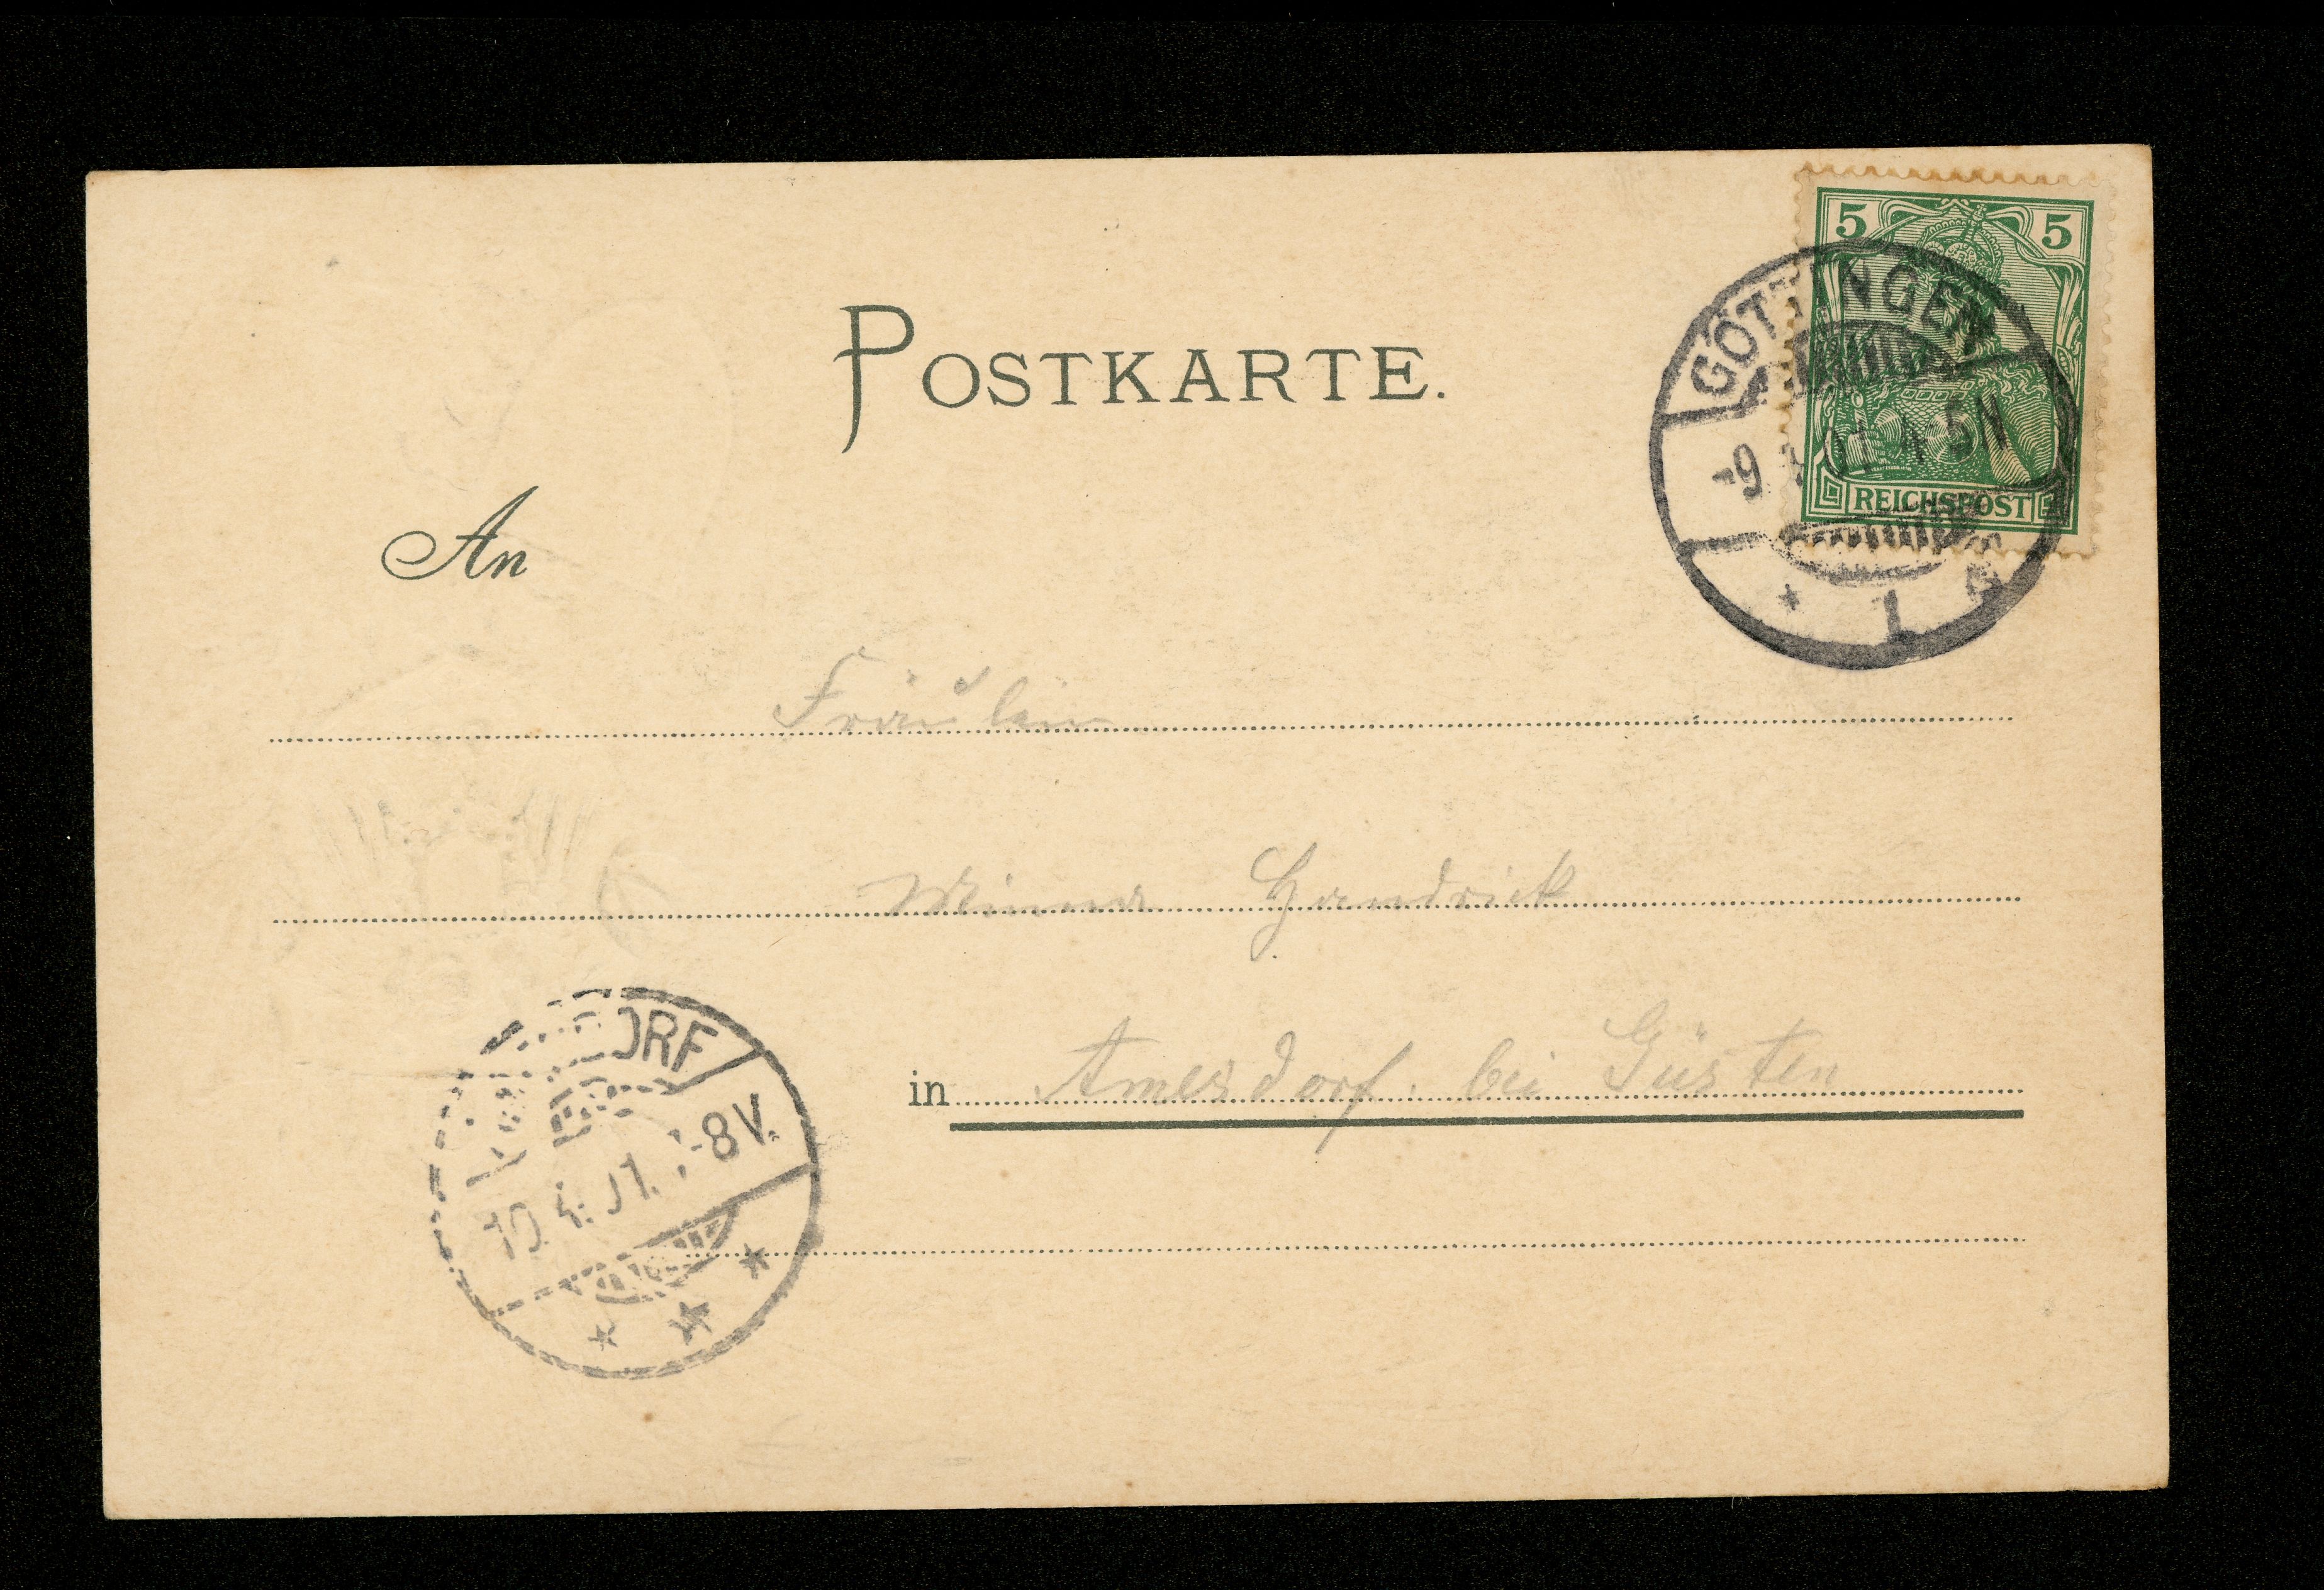 5 5
GÖTTINGEN
-9 01 4-5N
REICHSPOST
* 1
POSTKARTE.
An
Fräulein
Minna Handrick
in Amesdorf. bei Güsten
ORF
10.4.01. -8V.
* * *